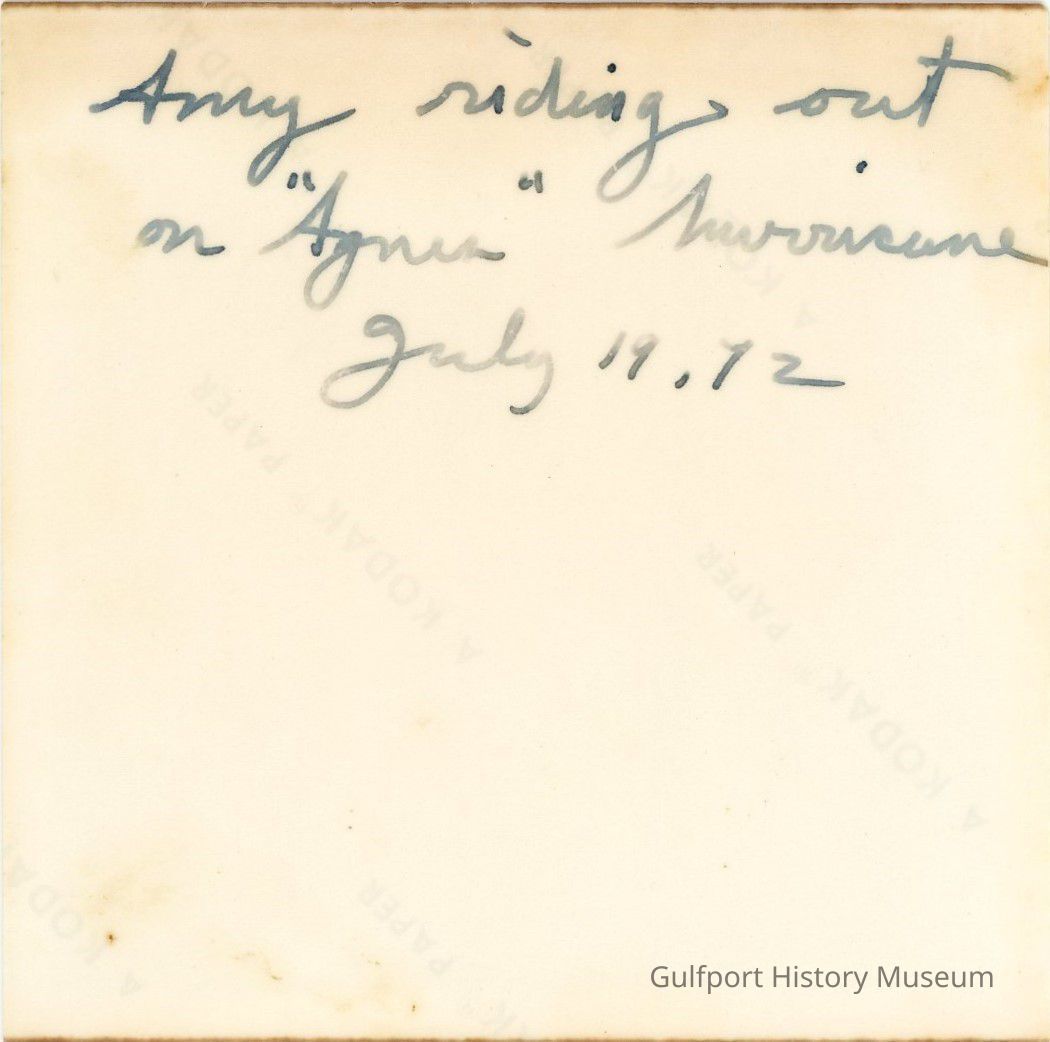 Amy riding out
on "Agnes" hurricane
July 19, 72
A KODAK PAPER
A KODAK PAPER
A KODAK
PAPER
Gulfport History Museum